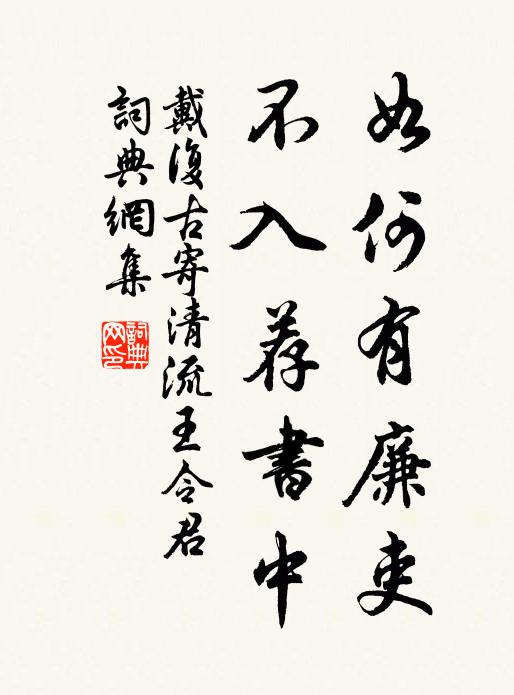 如何有廉吏
不入荐書中
戴復古寄清流王令君
詞典網集
詞典网印